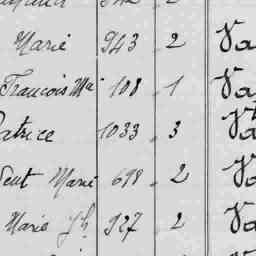 Marie 943 2 Va
François Mie 108 1 Va
Patrice 1033 3 Va
Marie 698 2 Va
Marie Jh 927 2 Va